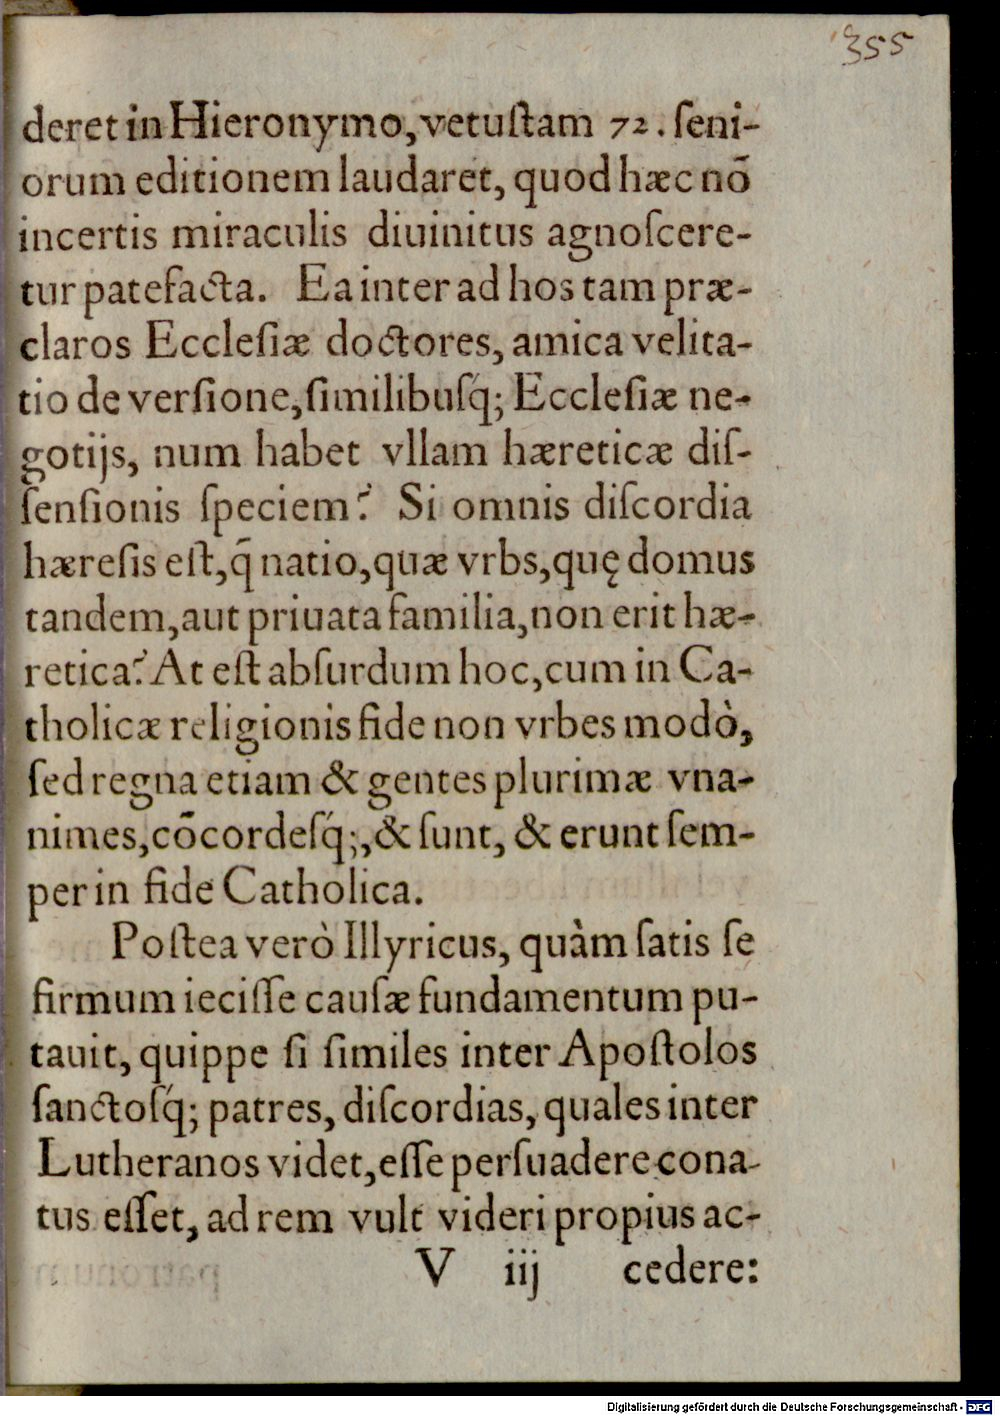 355
deret in Hieronymo, vetuſtam 72. ſeni-
orum editionem laudaret, quod hæc nō
incertis miraculis diuinitus agnoſcere-
tur patefacta. Ea inter ad hos tam præ-
claros Eccleſiæ doctores, amica velita-
tio de verſione, ſimilibuſq́; Eccleſiæ ne-
gotijs, num habet vllam hæreticæ diſ-
ſenſionis ſpeciem? Si omnis diſcordia
hæreſis eſt, q̄ natio, quæ vrbs, quę domus
tandem, aut priuata familia, non erit hæ-
retica? At eſt abſurdum hoc, cum in Ca-
tholicæ religionis fide non vrbes modò,
ſed regna etiam & gentes plurimæ vna-
nimes, cōcordeſq́;, & ſunt, & erunt ſem-
per in fide Catholica.
Poſtea verò Illyricus, quàm ſatis ſe
firmum ieciſſe cauſæ fundamentum pu-
tauit, quippe ſi ſimiles inter Apoſtolos
ſanctoſq́; patres, diſcordias, quales inter
Lutheranos videt, eſſe perſuadere cona-
tus eſſet, ad rem vult videri propius ac-
V iij cedere:
Digitalisierung gefördert durch die Deutsche Forschungsgemeinschaft - DFG